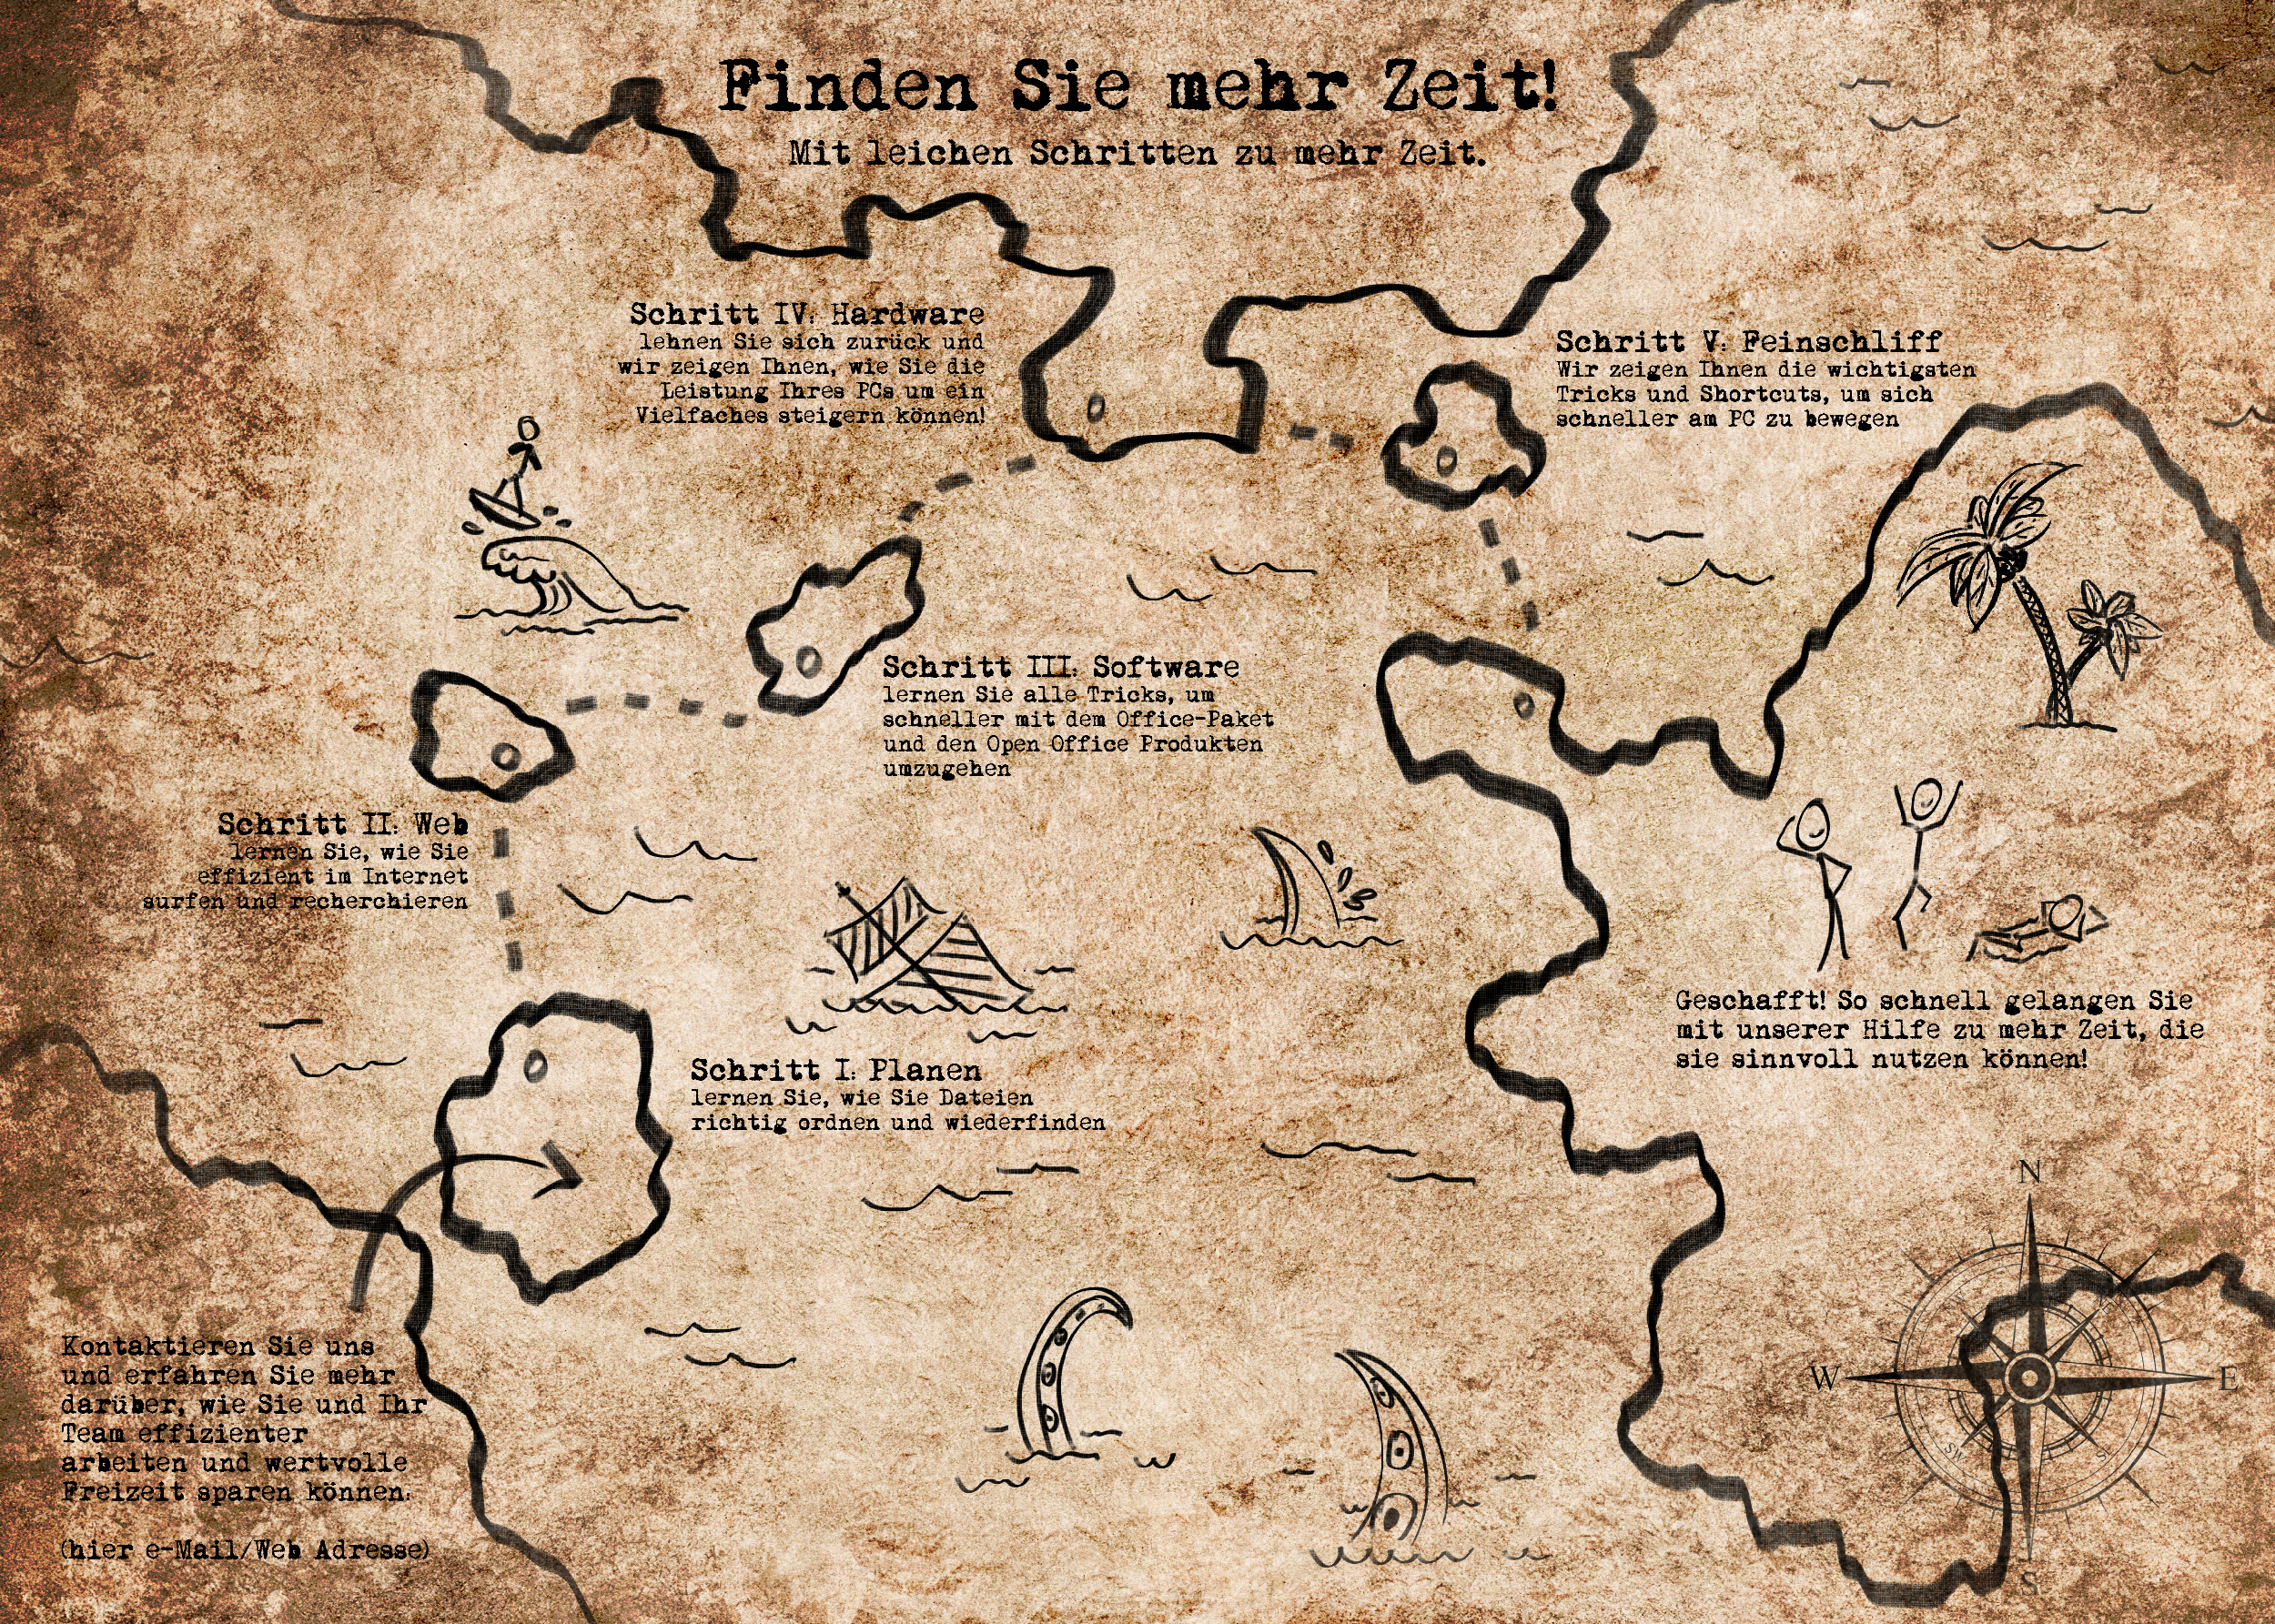 Finden Sie mehr Zeit!
Mit leichen Schritten zu mehr Zeit.
Schritt IV: Hardware
lehnen Sie sich zurück und
wir zeigen Ihnen, wie Sie die
Leistung Ihres PCs um ein
Vielfaches steigern können!
Schritt V: Feinschliff
Wir zeigen Ihnen die wichtigsten
Tricks und Shortcuts, um sich
schneller am PC zu bewegen
Schritt III: Software
lernen Sie alle Tricks, um
schneller mit dem Office-Paket
und den Open Office Produkten
umzugehen
Schritt II: Web
lernen Sie, wie Sie
effizient im Internet
surfen und recherchieren
Schritt I: Planen
lernen Sie, wie Sie Dateien
richtig ordnen und wiederfinden
Geschafft! So schnell gelangen Sie
mit unserer Hilfe zu mehr Zeit, die
sie sinnvoll nutzen können!
Kontaktieren Sie uns
und erfahren Sie mehr
darüber, wie Sie und Ihr
Team effizienter
arbeiten und wertvolle
Freizeit sparen können:
(hier e-Mail/Web Adresse)
N
W
E
SW
S